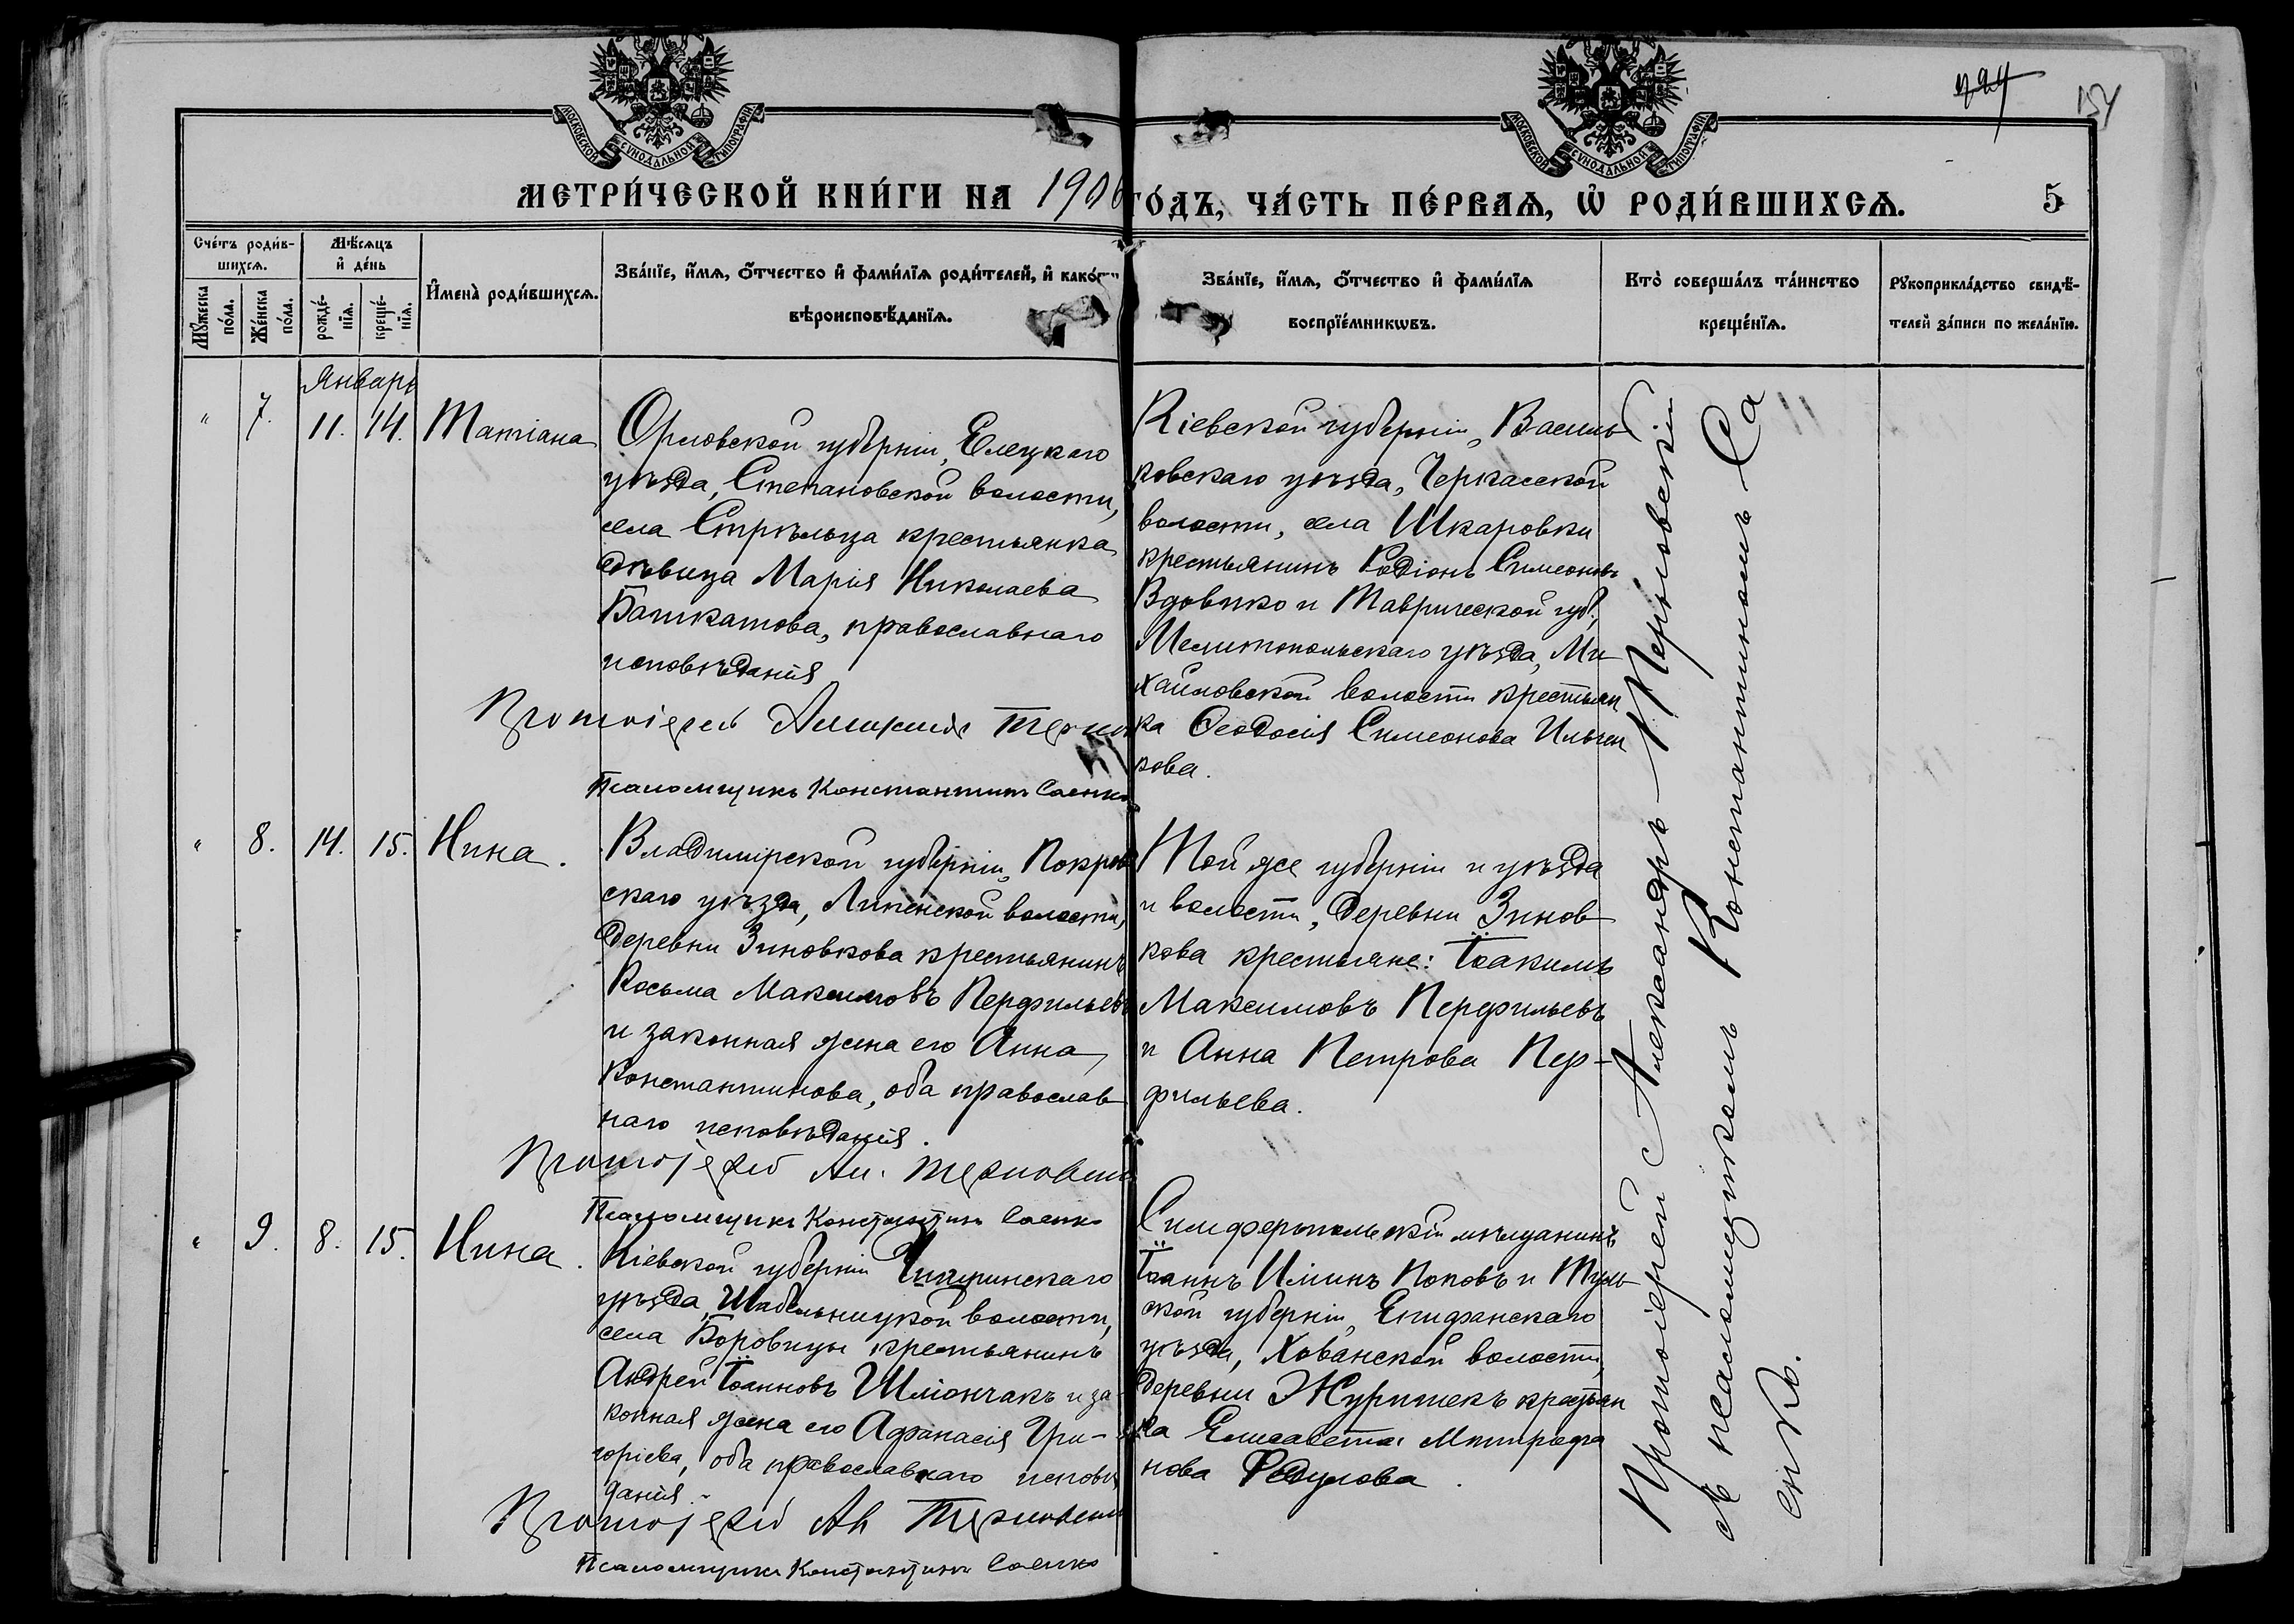 МОСКОВСКОЙ СѴНОДАЛЬНОЙ ТИПОГРАФІИ
МОСКОВСКОЙ СѴНОДАЛЬНОЙ ТИПОГРАФІИ
154
МЕТРИ́ЧЕСКОЙ КНИ́ГИ НА 1906 ГО́ДЪ, ЧА́СТЬ ПЕ́РВАѦ, Ѡ҆ РОДИ́ВШИХСѦ. 5
Сче́тъ роди́в-
шихсѧ.
Мꙋ́жеска
по́ла.
Же́нска
по́ла.
Мѣ́сѧцъ
и҆ де́нь
рожде́-
нїѧ.
креще́-
нїѧ.
И҆мена̀ роди́вшихсѧ.
Зва́нїе, и҆́мѧ, ѻ҆́тчество и҆ фами́лїѧ роди́телей, и҆ како́гѡ
вѣроисповѣ́данїѧ.
Зва́нїе, и҆́мѧ, ѻ҆́тчество и҆ фами́лїѧ
воспрїе́мникѡвъ.
Кто̀ соверша́лъ та́инство
креще́нїѧ.
Рꙋкоприкла́дство свидѣ́-
телей за́писи по жела́нїю.
Январь
" 7. 11. 14. Татіана
Орловской губерніи, Елецкаго
уѣзда, Степановской волости,
села Стрѣльца крестьянка
дѣвица Марія Николаева
Башкатова, православнаго
исповѣданія
Протоіерей Александръ Терновскій
Псаломщикъ Константинъ Саенко
Кіевской губерніи, Василь
ковскаго уѣзда, Черкасской
волости, села Шкаровки
крестьянинъ Родіонъ Симеоновъ
Вдовико и Таврической губ.,
Мелитопольскаго уѣзда, Ми
хайловской волости крестьян
ка Ѳеодосія Симеонова Ильчен
кова.
" 8. 14. 15. Нина.
Владимірской губерніи, Покров
скаго уѣзда, Липенской волости,
деревни Зиновкова крестьянинъ
Косьма Максимовъ Перфильевъ
и законная жена его Анна
Константинова, оба православ
наго исповѣданія.
Протоіерей Ал. Терновскій
Псаломщикъ Константинъ Саенко
Той же губерніи и уѣзда
и волости, деревни Зинов
кова крестьяне: Іоакимъ
Максимовъ Перфильевъ
и Анна Петрова Пер-
фильева.
" 9. 8. 15. Нина.
Кіевской губерніи Чигиринскаго
уѣзда, Шабельницкой волости,
села Боровицы крестьянинъ
Андрей Іоанновъ Шліончакъ и за-
конная жена его Афанасія Гри-
горіева, оба православнаго исповѣ
данія.
Протоіерей Ал Терновскій
Псаломщикъ Константинъ Саенко
Симферопольскій мѣщанинъ
Іоаннъ Иліинъ Поповъ и Туль
ской губерніи, Епифанскаго
уѣзда, Хованской волости,
деревни Журишекъ крестьян
ка Елисавета Митрофа
нова Федулова.
Протоіерей Александръ Терновскій
съ псаломщикомъ Константиномъ Са
енко.